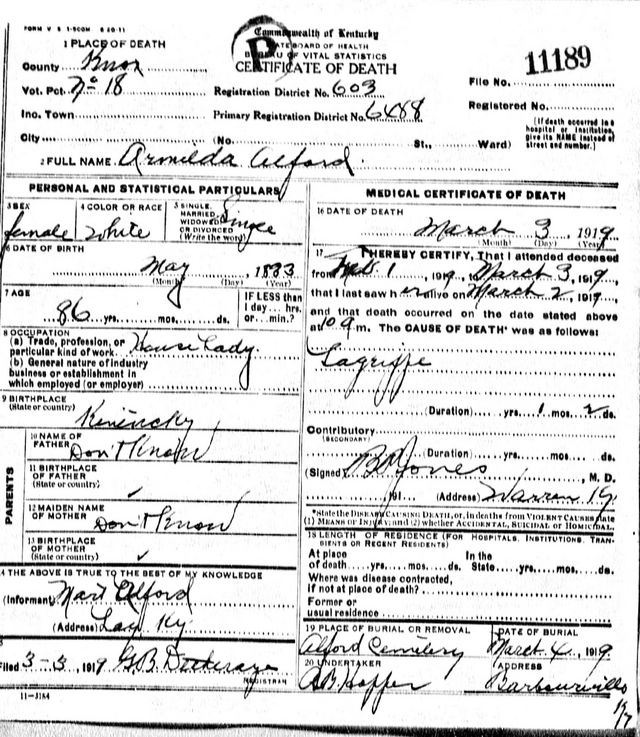 FORM V S 1-50M 8-20-11
Commonwealth of Kentucky
STATE BOARD OF HEALTH
BUREAU OF VITAL STATISTICS
CERTIFICATE OF DEATH
11189
1 PLACE OF DEATH
County Knox
Vot. Pct. No 18 Registration District No. 603 File No.
Ino. Town Primary Registration District No. 6488 Registered No.
City (No. St., Ward)
(If death occurred in a hospital or institution, give its NAME instead of street and number.)
2 FULL NAME Armilda Alford
PERSONAL AND STATISTICAL PARTICULARS
3 SEX female
4 COLOR OR RACE White
5 SINGLE, MARRIED, WIDOWED OR DIVORCED (Write the word) Single
6 DATE OF BIRTH
May 1833
(Month) (Day) (Year)
7 AGE
86 yrs. mos. ds.
IF LESS than 1 day... hrs. or... min.?
8 OCCUPATION
(a) Trade, profession, or particular kind of work. House Lady
(b) General nature of industry
business or establishment in
which employed (or employer)
9 BIRTHPLACE
(State or country)
Kentucky
PARENTS
10 NAME OF FATHER Don't Know
11 BIRTHPLACE OF FATHER
(State or country)
12 MAIDEN NAME OF MOTHER Don't Know
13 BIRTHPLACE OF MOTHER
(State or country)
14 THE ABOVE IS TRUE TO THE BEST OF MY KNOWLEDGE
(Informant) Mart Alford
(Address) Lay Ky
Filed 3-3, 1919 G.B.
REGISTRAR
11-3184
MEDICAL CERTIFICATE OF DEATH
16 DATE OF DEATH
March 3, 1919
(Month) (Day) (Year)
17 I HEREBY CERTIFY, That I attended deceased
from Feb. 1 1919, to March 3, 1919,
that I last saw her alive on March 2 1919
and that death occurred on the date stated above
at 10 9 m. The CAUSE OF DEATH* was as follows:
Lagrippe
(Duration) yrs. 1 mos. 2 ds.
Contributory
(SECONDARY)
(Duration) yrs. mos. ds.
(Signed) B Jones, M. D.
191 (Address) Warren Ky.
*State the DISEASE CAUSING DEATH, or, in deaths from VIOLENT CAUSES state
(1) MEANS OF INJURY; and (2) whether ACCIDENTAL, SUICIDAL or HOMICIDAL.
18 LENGTH OF RESIDENCE (FOR HOSPITALS, INSTITUTIONS, TRANSIENTS OR RECENT RESIDENTS)
At place of death yrs. mos. ds. In the State yrs. mos. ds.
Where was disease contracted,
if not at place of death?
Former or
usual residence
19 PLACE OF BURIAL OR REMOVAL
Alford Cemetery
DATE OF BURIAL
March 4, 1919
20 UNDERTAKER
ADDRESS
Barbourville
Ky